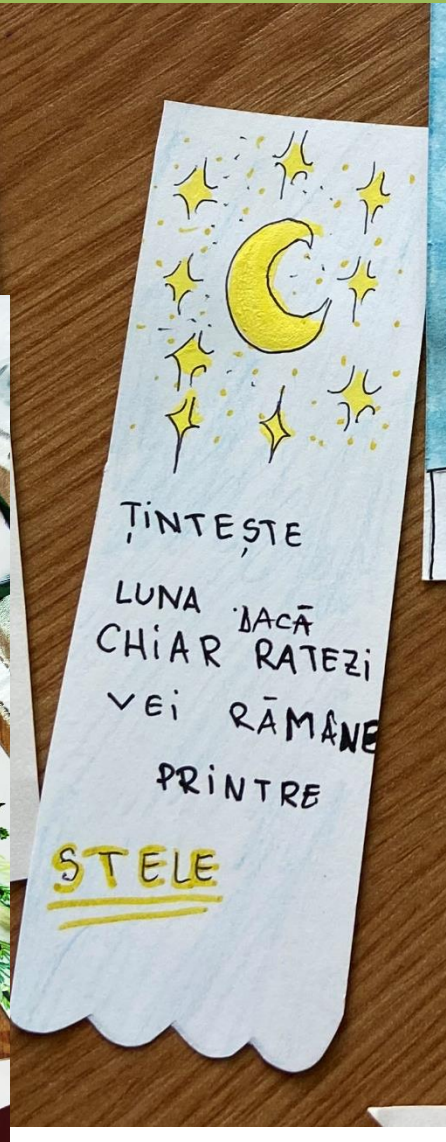 ȚiNTEȘTE
LUNA DACĂ
CHiAR RATEZi
VEi RĂMÂNE
PRiNTRE
STELE